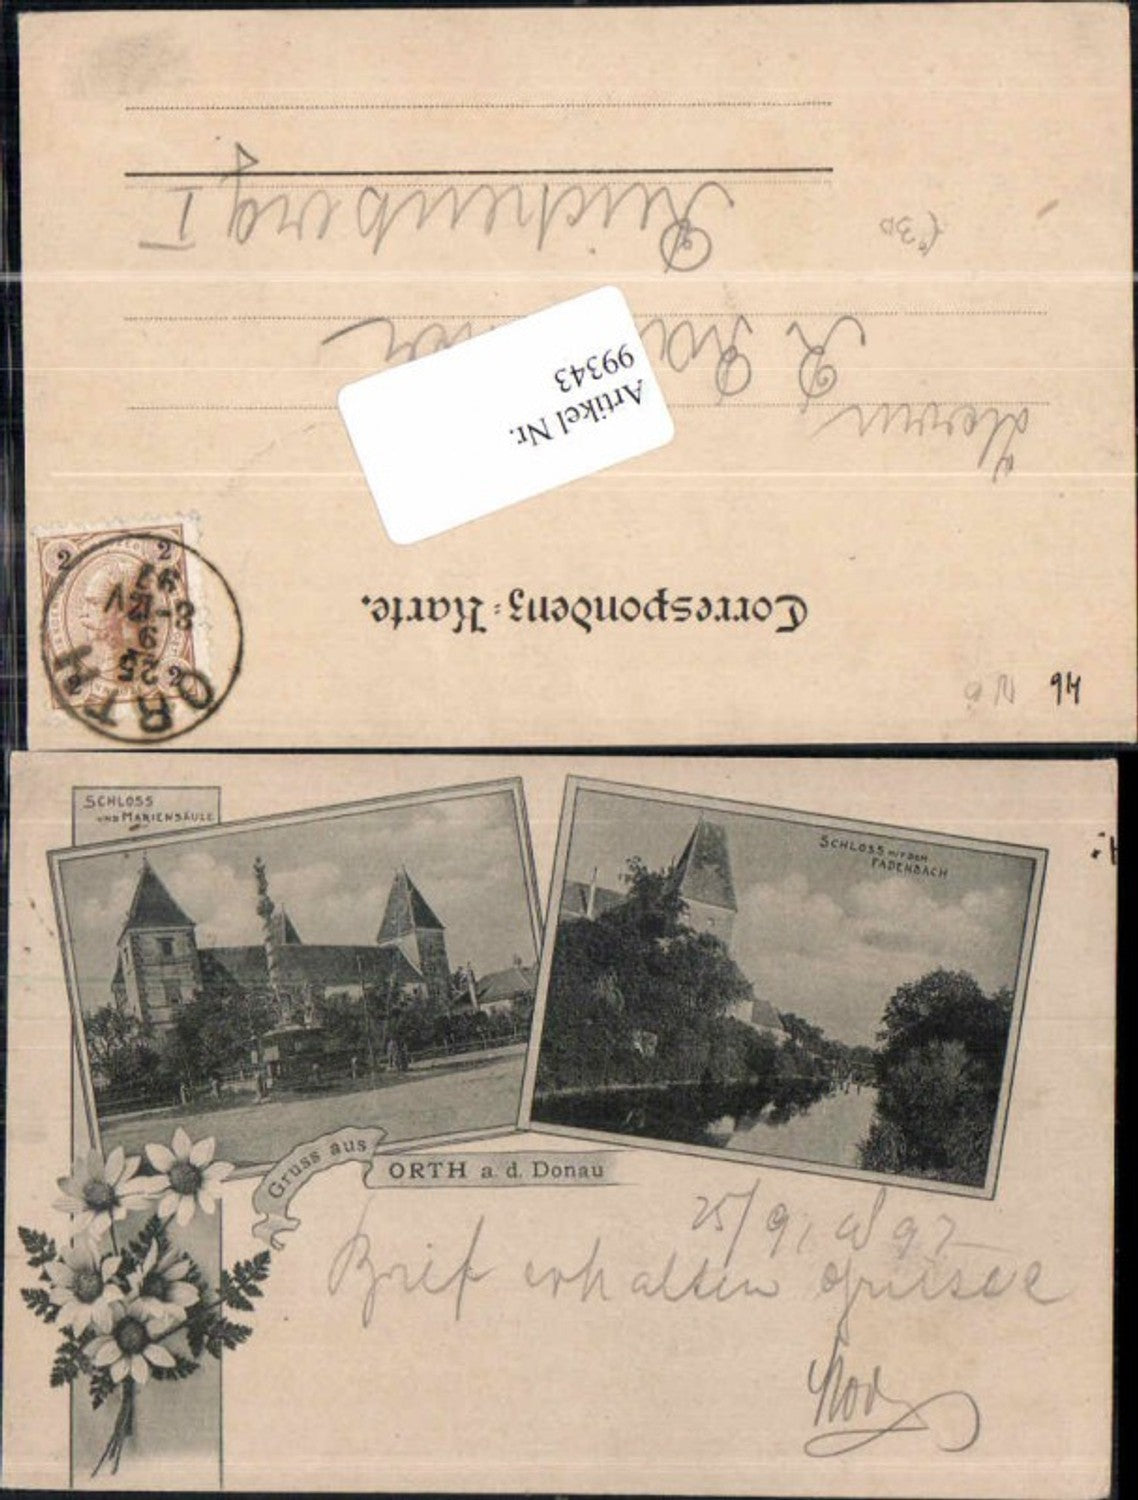 94
Correspondenz-Karte.
2
2
2
2
ORTH
25
9
8-12V
97
Herrn
R
Artikel Nr.
99343
Reichenberg I
SCHLOSS
UND MARIENSÄULE
SCHLOSS MIT DEM
FADENBACH
Gruss aus
ORTH a. d. Donau
25/9, 97
Brief erhalten Grüsse